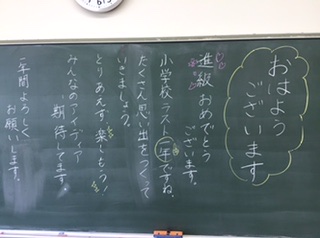 おはよう
ございます
進級おめでとう
ございます。
小学校ラスト一年ですね。
たくさん思い出をつくって
いきましょう。
とりあえず、楽しもう!
みんなのアイディア
期待してます。
一年間よろしく
お願いします。